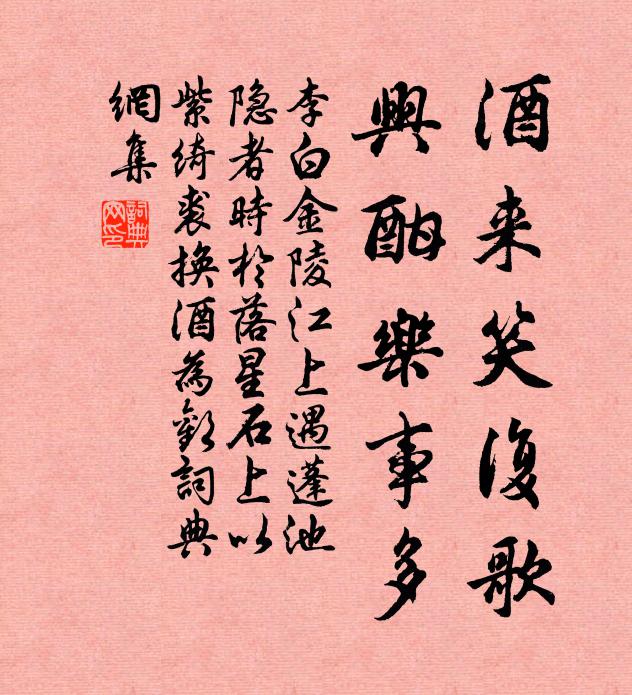 酒来笑復歌
興酣樂事多
李白金陵江上遇蓬池
隐者時於落星石上以
紫綺裘換酒為歡詞典
網集
詞典網印